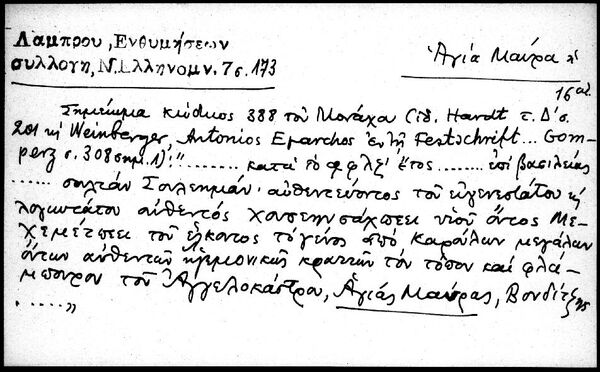 Λάμπρου, Ἐνθυμήσεων
συλλογή, Ν. Ἑλληνομν. 7 σ. 173
Ἁγία Μαύρα
16 αἰ.
Σημείωμα κώδικος 388 τοῦ Μονάχου (ἰδ. Hardt τ. Δ' σ.
201 κὴ Weinberger, Antonios Eparchos ἐν τῇ Festschrift... Gom-
perz σ. 308 σημ. 1): "........ κατὰ τὸ φφλξ' ἔτος ...... ἐπὶ βασιλείας
...... σουλτὰν Σουλημιάν· αὐθεντεύοντος τοῦ εὐγενεστάτου κὴ
λογιωτάτου αὐθεντός υἱοῦ ὄντος Με-
τοῦ ἕλκοντος τὸ γένος ἀπὸ μεγάλων
ὄντων αὐθεντῶν ἡγεμονικῶς κρατεῖν τὸν τόπον καὶ φλά-
μπουρον τοῦ Ἀγγελοκάστρου, Ἁγιᾶς Μαύρας, Βονδίτζης
. . . . . "